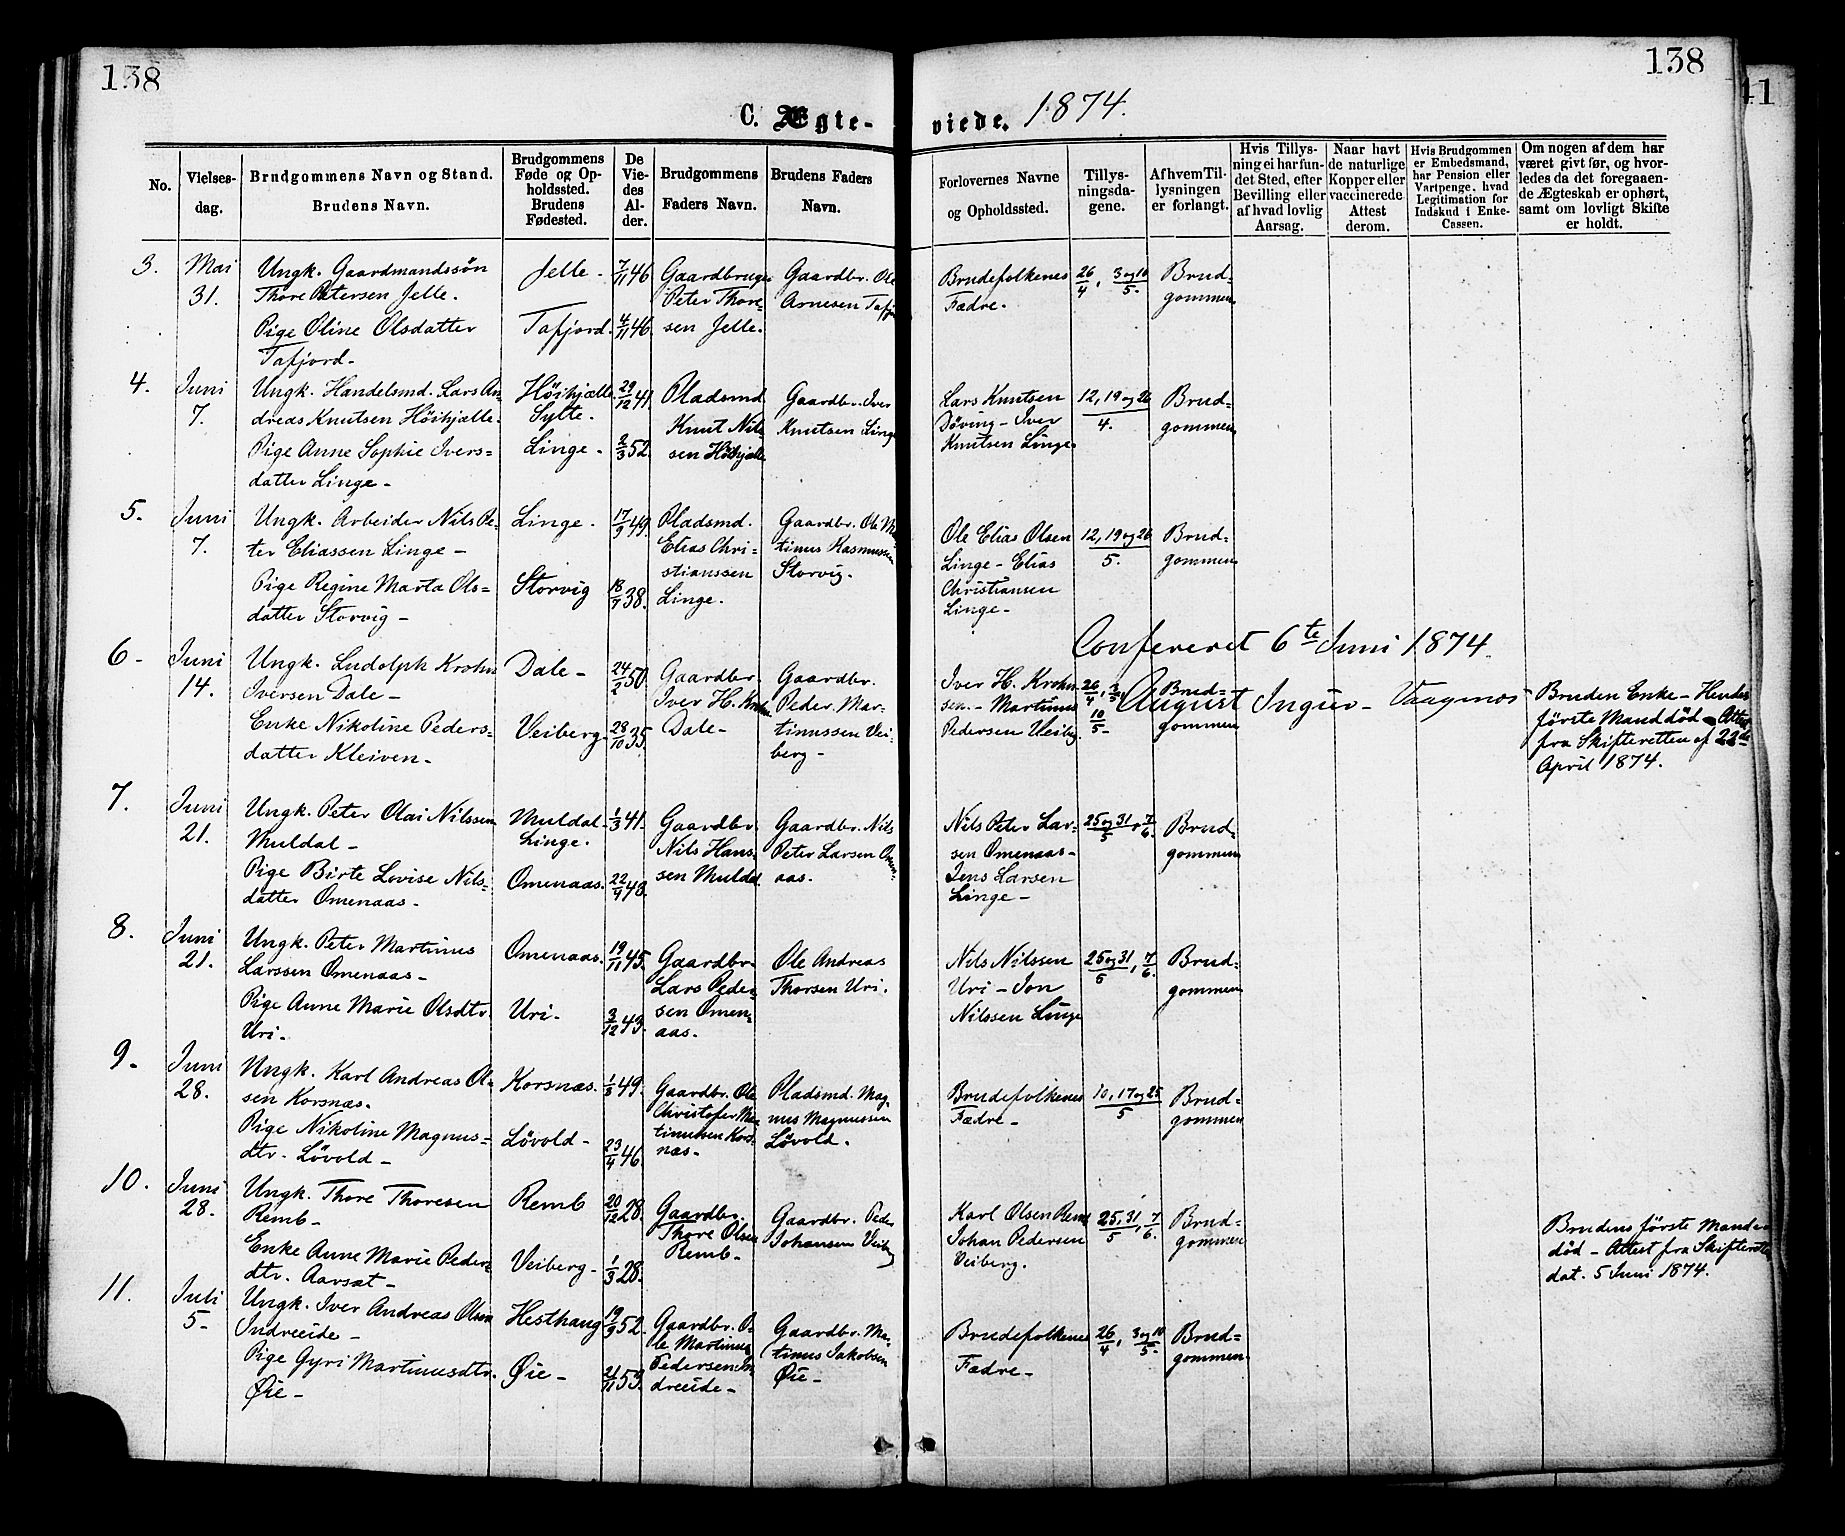 138
138
41
C. Ægte-
viede. 1874.
No.
Vielses-
dag.
Brudgommens Navn og Stand.
Brudens Navn.
Brudgommens
Føde og Op-
holdssted.
Brudens
Fødested.
De
Vie-
des
Al-
der.
Brudgommens
Faders Navn.
Brudens Faders
Navn.
Forlovernes Navne
og Opholdssted.
Tillys-
ningsda-
gene.
Af hvem Til-
lysningen
er forlangt.
Hvis Tillys-
ning ei har fun-
det Sted, efter
Bevilling eller
af hvad lovlig
Aarsag.
Naar havt
de naturlige
Kopper eller
vaccinerede
Attest
derom.
Hvis Brudgommen
er Embedsmand,
har Pension eller
Vartpenge, hvad
Legitimation for
Indskud i Enke-
Cassen.
Om nogen af dem har
været givt før, og hvor-
ledes da det foregaaen-
de Ægteskab er ophørt,
samt om lovligt Skifte
er holdt.
3.
Mai
31.
Ungk. Gaardmandssøn
Thore Petersen Jelle.
Pige Oline Olsdatter
Tafjord-
Jelle-
Tafjord.
7/11 46
4/11 46.
Gaardbruger
Peter Thore-
sen Jelle.
Gaardbr. Ole
Arnesen Tafj
Brudefolkenes
Fædre.
26/4, 3 og 10/5.
Brud-
gommen
4.
Juni
7.
Ungk. Handelsmd. Lars An-
dreas Knutsen Höihjælle.
Pige Anne Sophie Ivers-
datter Linge-
Höihjælle
Sylte.
Linge-
29/12 41
2/3 52.
Pladsmd
Knut Nils-
sen Höihjælle
Gaardbr. Iver
Knutsen Linge
Lars Knutsen
Döving- Iver
Knutsen Linge
12, 19 og 26/4.
Brud-
gommen
5.
Juni
7.
Ungk. Arbeider Nils Pe-
ter Eliassen Linge-
Pige Regine Marta Ols-
datter Storvig-
Linge.
Storvig
17/9 49.
18/7 38.
Pladsmd.
Elias Chri-
stianssen
Linge.
Gaardbr. Ole Mar
tinus Rasmussen
Storvig.
Ole Elias Olsen
Linge- Elias
Christiansen
Linge-
12, 19 og 26/5.
Brud-
gommen
Confereret 6te Juni 1874.
August Ingier- Vaagmæs
6-
Juni
14.
Ungk. Ludolph Krohn
Iversen Dale-
Enke Nikoline Peders-
datter Kleiven.
Dale-
Veiberg-
24/2 50.
28/10 35.
Gaardbr.
Iver H. Krohn
Dale-
Gaardbr.
Peder Mar-
tinussen Vei-
berg-
Iver H. Krohn-
sen- Martinus
Pedersen Veibg.
26/4, 3/5, 10/5-
Brud-
gommen
Bruden Enke- Hendes
förste Mand död- Attest
fra Skifteretten af 22de
April 1874.
7.
Juni
21.
Ungk. Peter Olai Nilssen
Muldal-
Pige Birte Lovise Nils-
datter Omenaas.
Muldal-
Linge.
Omenaas.
1/3 41.
22/9 48.
Gaardbr.
Nils Hans-
sen Muldal
Gaardbr. Nils
Peter Larsen Omen-
aas.
Nils Peter Lar-
sen Omenaas-
Jens Larsen
Linge-
25 og 31/5, 7/6.
Brud-
gommen
8.
Juni
21.
Ungk. Peter Martinus
Larssen Omenaas-
Pige Anne Marie Olsdtr.
Uri-
Omenaas.
Uri-
19/11 45.
3/12 43.
Gaardbr-
Lars Peder-
sen Omen-
aas.
Ole Andreas
Thorsen Uri.
Nils Nilssen
Uri- Jon
Nilssen Linge
25 og 31/5, 7/6.
Brud-
gommen
9-
Juni
28.
Ungk. Karl Andreas Ol-
sen Korsnæs.
Pige Nikoline Magnus-
dtr. Lövold-
Korsnæs.
Lövold-
1/3 49.
23/4 46.
Gaardbr. Ole
Christofer Mar
tinussen Kors-
næs-
Pladsmd. Mag-
nus Magnussen
Lövold.
Brudefolkenes
Fædre-
10, 17 og 25/5
Brud-
gommen
10.
Juni
28.
Ungk. Thore Thoresen
Remb-
Enke Anne Marie Peder-
dtr. Aarsæt-
Remb
Veiberg-
20/12 28.
1/3 28.
Gaardbr.
Thore Olsen
Remb-
Gaardbr. Peder
Johansen Veiberg
Karl Olsen Remb
Johan Pedersen
Veiberg.
25, 31/5, 7/6.
Brud-
gommen
Brudens förste Mand
död- Attest fra Skifteretten
dat. 5 Juni 1874.
11.
Juli
5-
Ungk. Iver Andreas Olsen
Indreeide-
Pige Gyri Martinusdtr.
Øie-
Hesthaug
Øie-
19/9 52.
21/11 53.
Gaardbr. O-
le Martinus
Pedersen In-
dreeide-
Gaardbr. Mar-
tinus Jakobsen
Øie-
Brudefolkenes
Fædre-
26/4, 3 og 10/5.
Brud-
gommen.